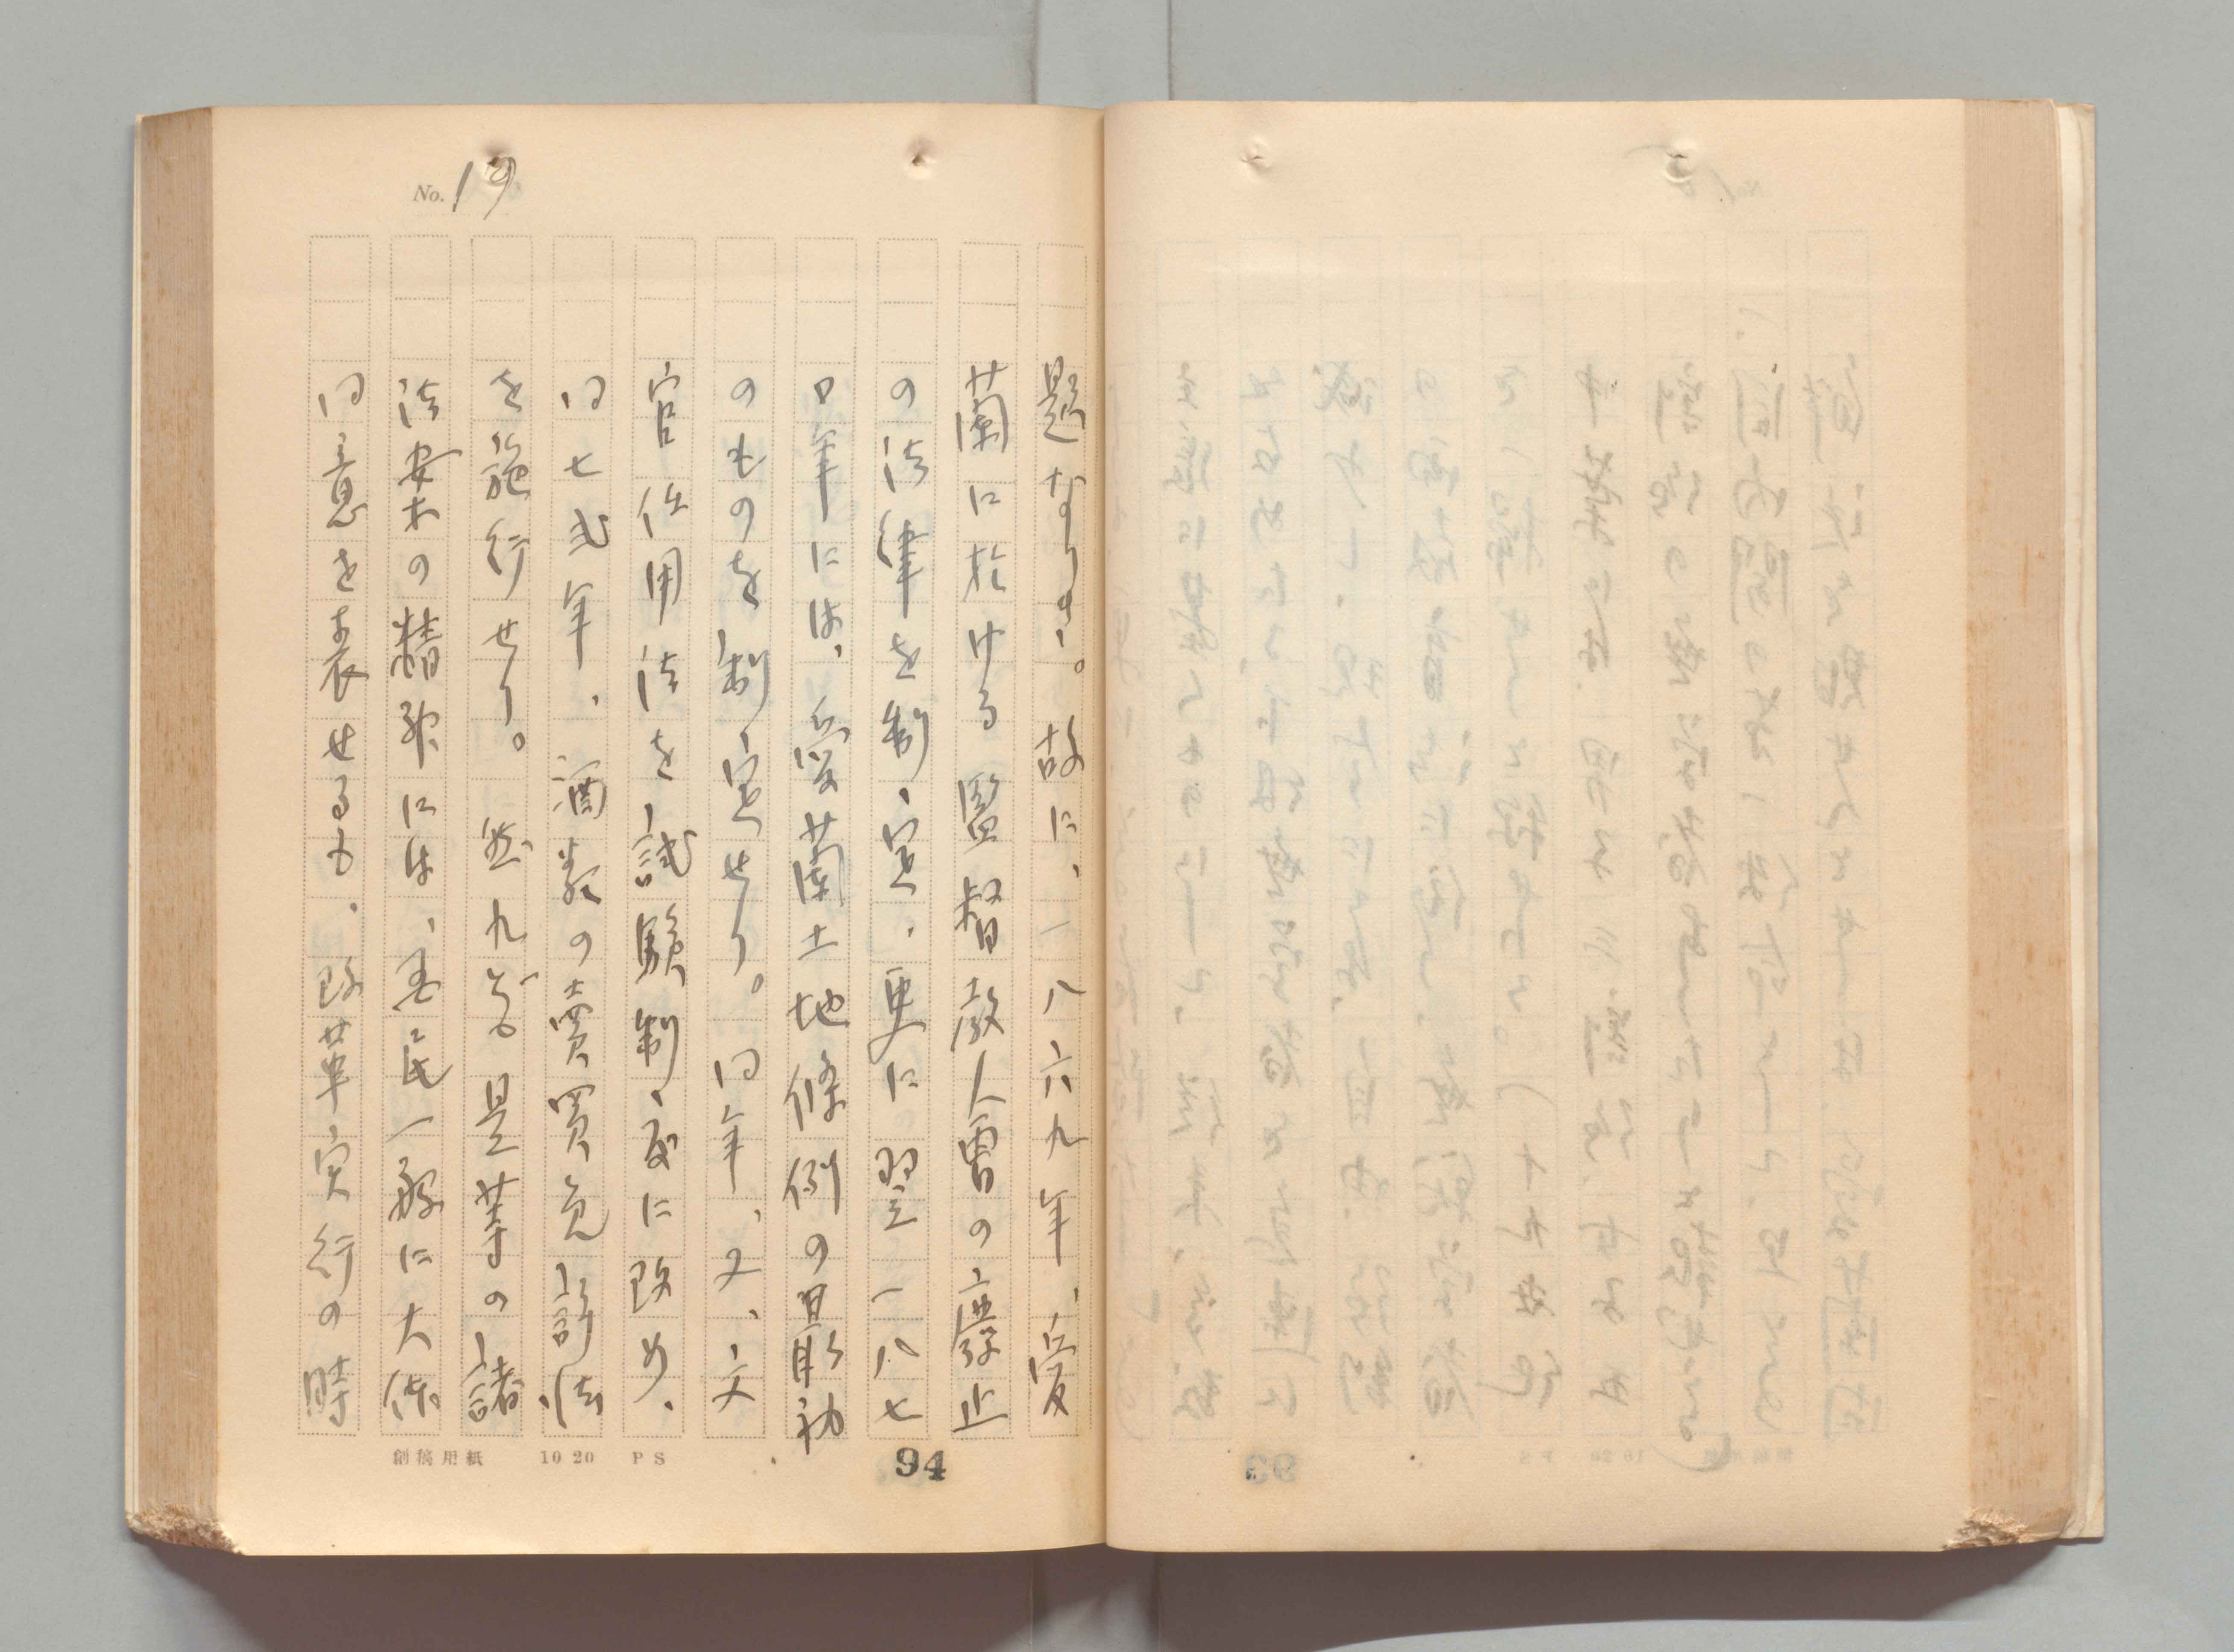 No. 19
題なりき。故に、一八六九年、愛
蘭に於ける監督教人曹の廢止
の法律を制定、更に翌一八七
〇年には、愛蘭土地條例の最初
のものを制定せり。同年、又、文
官任用法を試験制度に改め、
同七弐年、酒類の賣買免許法
を施行せり。然れども是等の諸
法案の精神には、國民一般に大体
同意を表せるも、改革実行の時
創稿用紙 10 20 PS
94